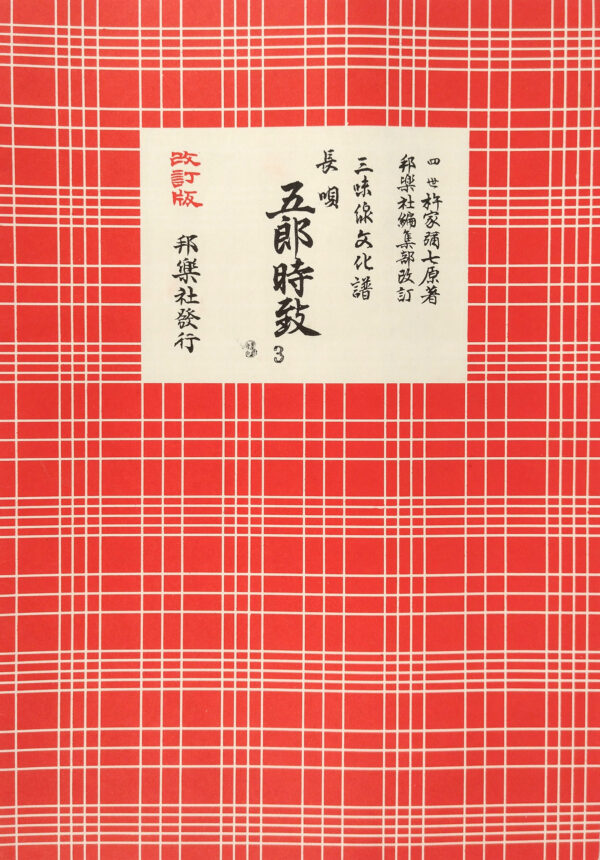 四世杵家彌七原著
邦樂社編集部改訂
三味線文化譜
長唄
五郎時致
3
3
改訂版
邦樂社發行